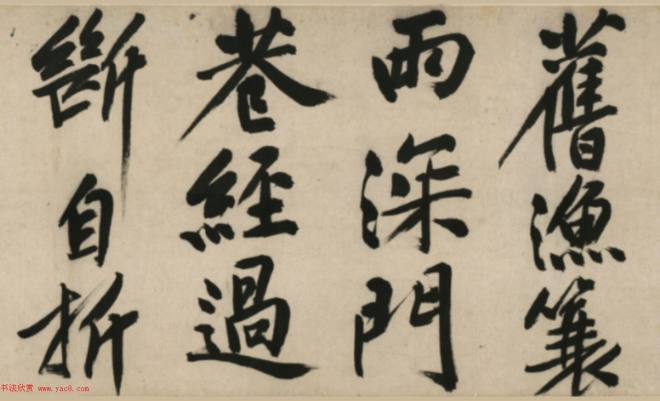 舊漁簑
雨深門
巷經過
斷自折
书法欣赏 www.yac8.com